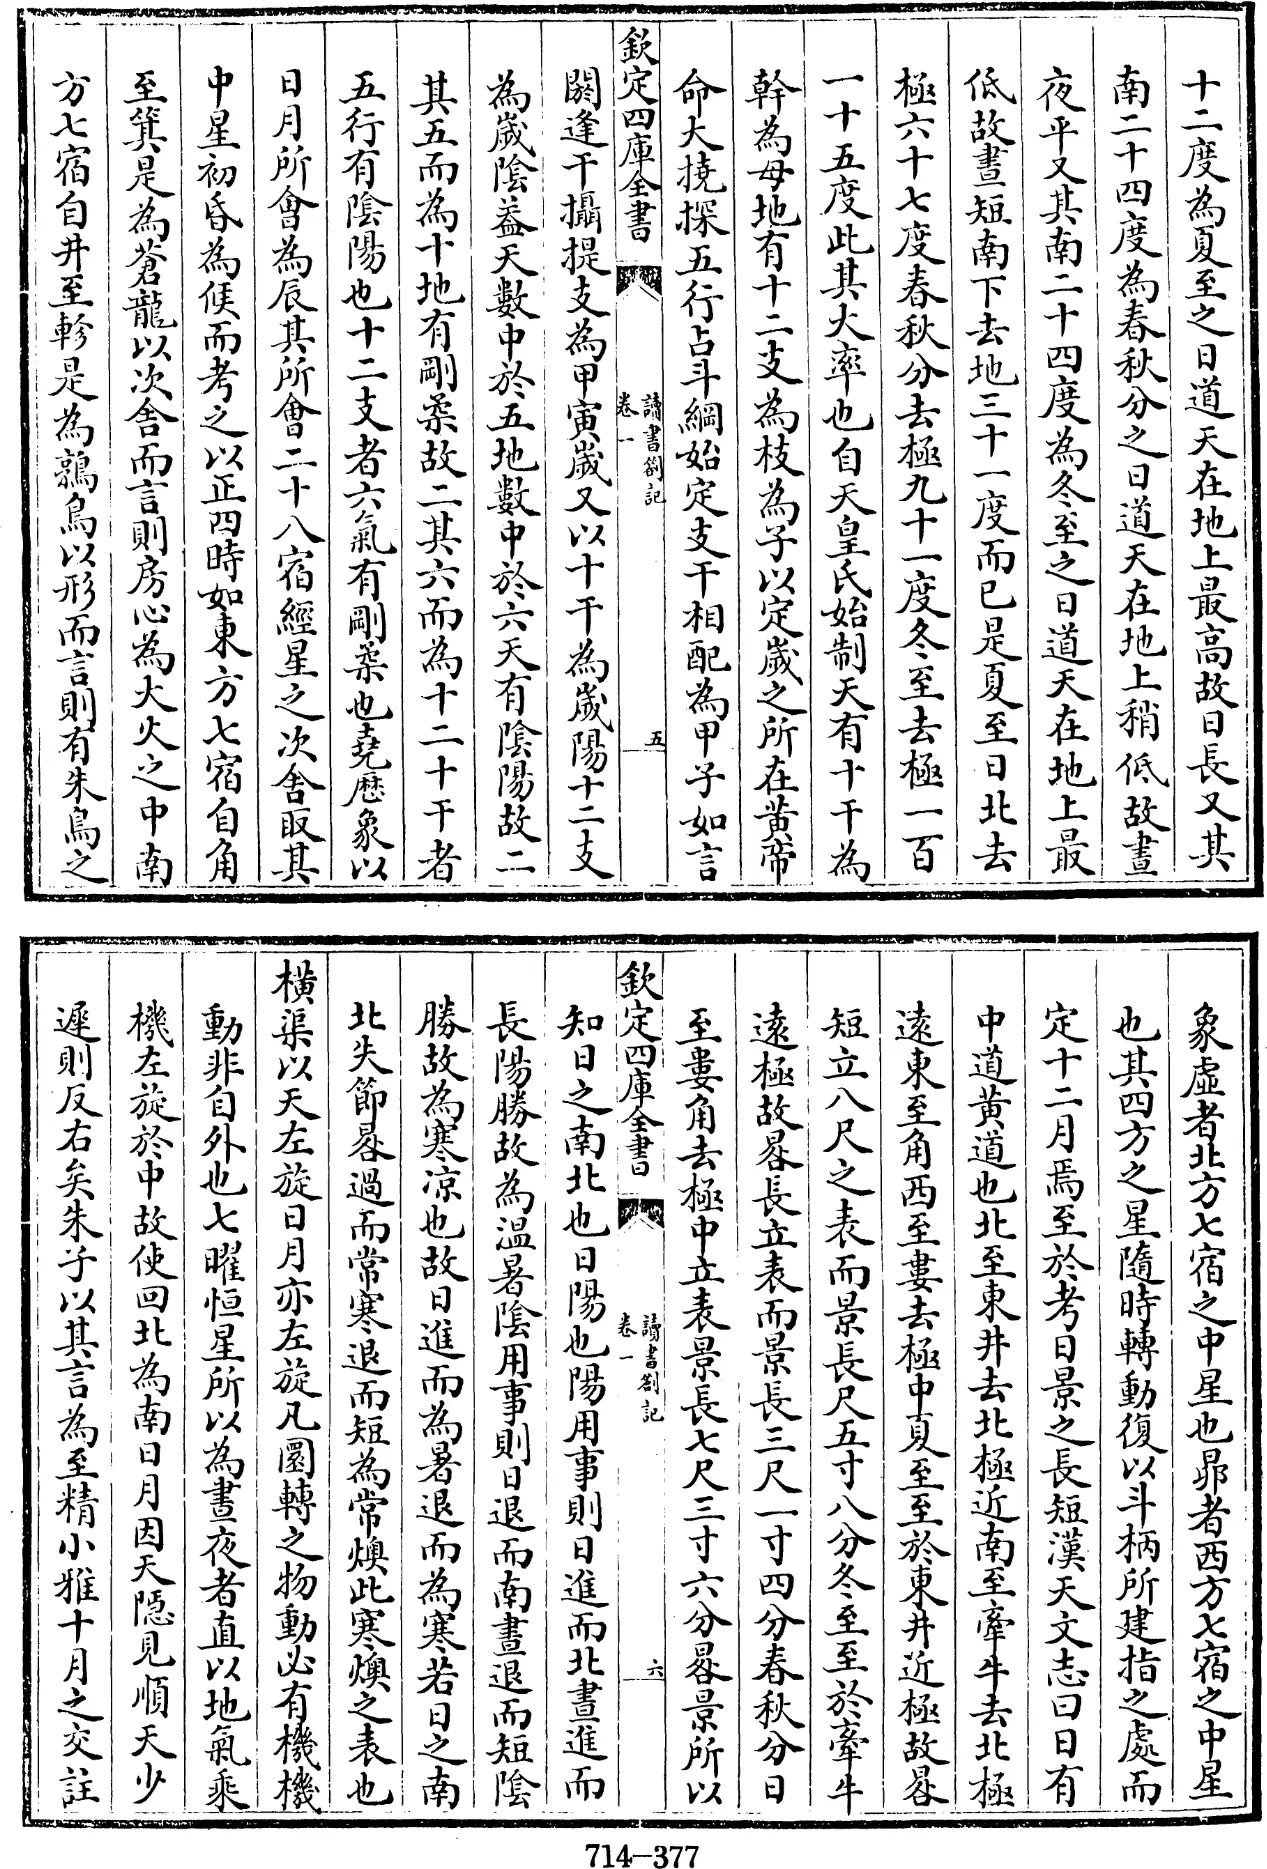 十二度為夏至之日道天在地上最高故日長又其
南二十四度為春秋分之日道天在地上稍低故晝
夜平又其南二十四度為冬至之日道天在地上最
低故晝短南下去地三十一度而已是夏至日北去
極六十七度春秋分去極九十一度冬至去極一百
一十五度此其大率也自天皇氏始制天有十干為
幹為母地有十二支為枝為子以定歲之所在黄帝
命大撓探五行占斗綱始定支干相配為甲子如言
欽定四庫全書
讀書劄記
卷一
五
閼逢干攝提支為甲寅歲又以十干為歲陽十二支
為歲陰葢天數中於五地數中於六天有陰陽故二
其五而為十地有剛柔故二其六而為十二十干者
五行有陰陽也十二支者六氣有剛柔也堯歷象以
日月所會為辰其所會二十八宿經星之次舍取其
中星初昏為候而考之以正四時如東方七宿自角
至箕是為蒼龍以次舍而言則房心為大火之中南
方七宿自井至軫是為鶉鳥以形而言則有朱鳥之
象虛者北方七宿之中星也昴者西方七宿之中星
也其四方之星隨時轉動復以斗柄所建指之處而
定十二月焉至於考日景之長短漢天文志曰日有
中道黄道也北至東井去北極近南至牽牛去北極
遠東至角西至婁去極中夏至至於東井近極故晷
短立八尺之表而景長尺五寸八分冬至至於牽牛
遠極故晷長立表而景長三尺一寸四分春秋分日
至婁角去極中立表景長七尺三寸六分晷景所以
欽定四庫全書
讀書劄記
卷一
六
知日之南北也日陽也陽用事則日進而北晝進而
長陽勝故為溫暑陰用事則日退而南晝退而短陰
勝故為寒凉也故日進而為暑退而為寒若日之南
北失節晷過而常寒退而短為常燠此寒燠之表也
橫渠以天左旋日月亦左旋凡圜轉之物動必有機機
動非自外也七曜恒星所以為晝夜者直以地氣乘
機左旋於中故使回北為南日月因天隱見順天少
遲則反右矣朱子以其言為至精小雅十月之交註
714-377